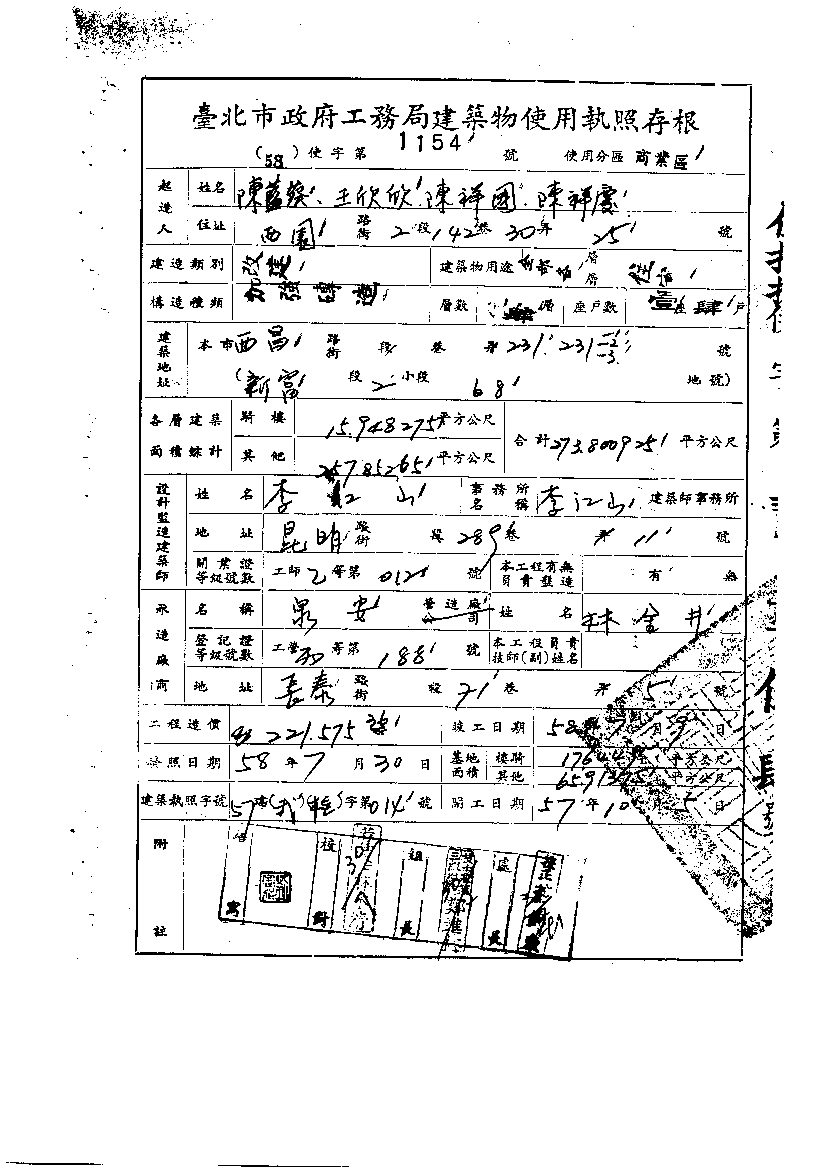 臺北市政府工務局建築物使用執照存根
(58) 使字第 1154 號 使用分區 商業區
起造人 姓名 陳 王欣欣 陳祥國 陳祥慶
住址 西園 路街 2 段 142 巷 30 弄 25 號
建造類別 改建 建築物用途 住
構造種類 加強磚造 層數 層 座戶數 壹座肆戶
建築地址 本市西昌 路街 段 巷 弄 231 231-2 -3 號
(新富 段 2 小段 68 地號)
各層建築面積綜計 騎樓 15.948275 平方公尺 合計 273.800925 平方公尺
其他 257.85265 平方公尺
設計監造建築師 姓名 李江山 事務所名稱 李江山 建築師事務所
地址 昆明 路街 段 289 巷 弄 11 號
開業證等級號數 工師乙等第 012 號 本工程有無負責監造 有 無
承造廠商 名稱 泉安 營造廠公司 姓名 林金井
登記證等級號數 工營丙等第 188 號 本工程負責技師(副)姓名
地址 長泰 路街 段 71 巷 弄 5 號
工程造價 221.575 竣工日期 58 年 7 月 9 日
發照日期 58 年 7 月 30 日 基地面積 騎樓 平方公尺
其他 平方公尺
建築執照字號 57 建 字第 014 號 開工日期 57 年 10 月 5 日
附註
繕寫 校對 組長 處長